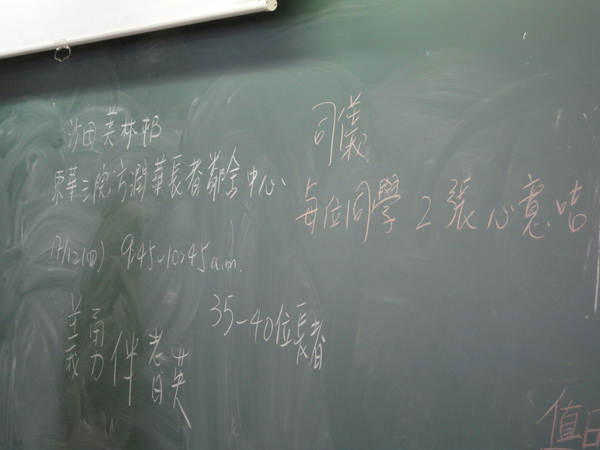 沙田美林邨
東華三院方潤華長者鄰舍中心
17/12(四) 9:45-10:45 a.m.
35-40位長者
義勇伴耆英
司儀
每位同學2張心意咭
值日